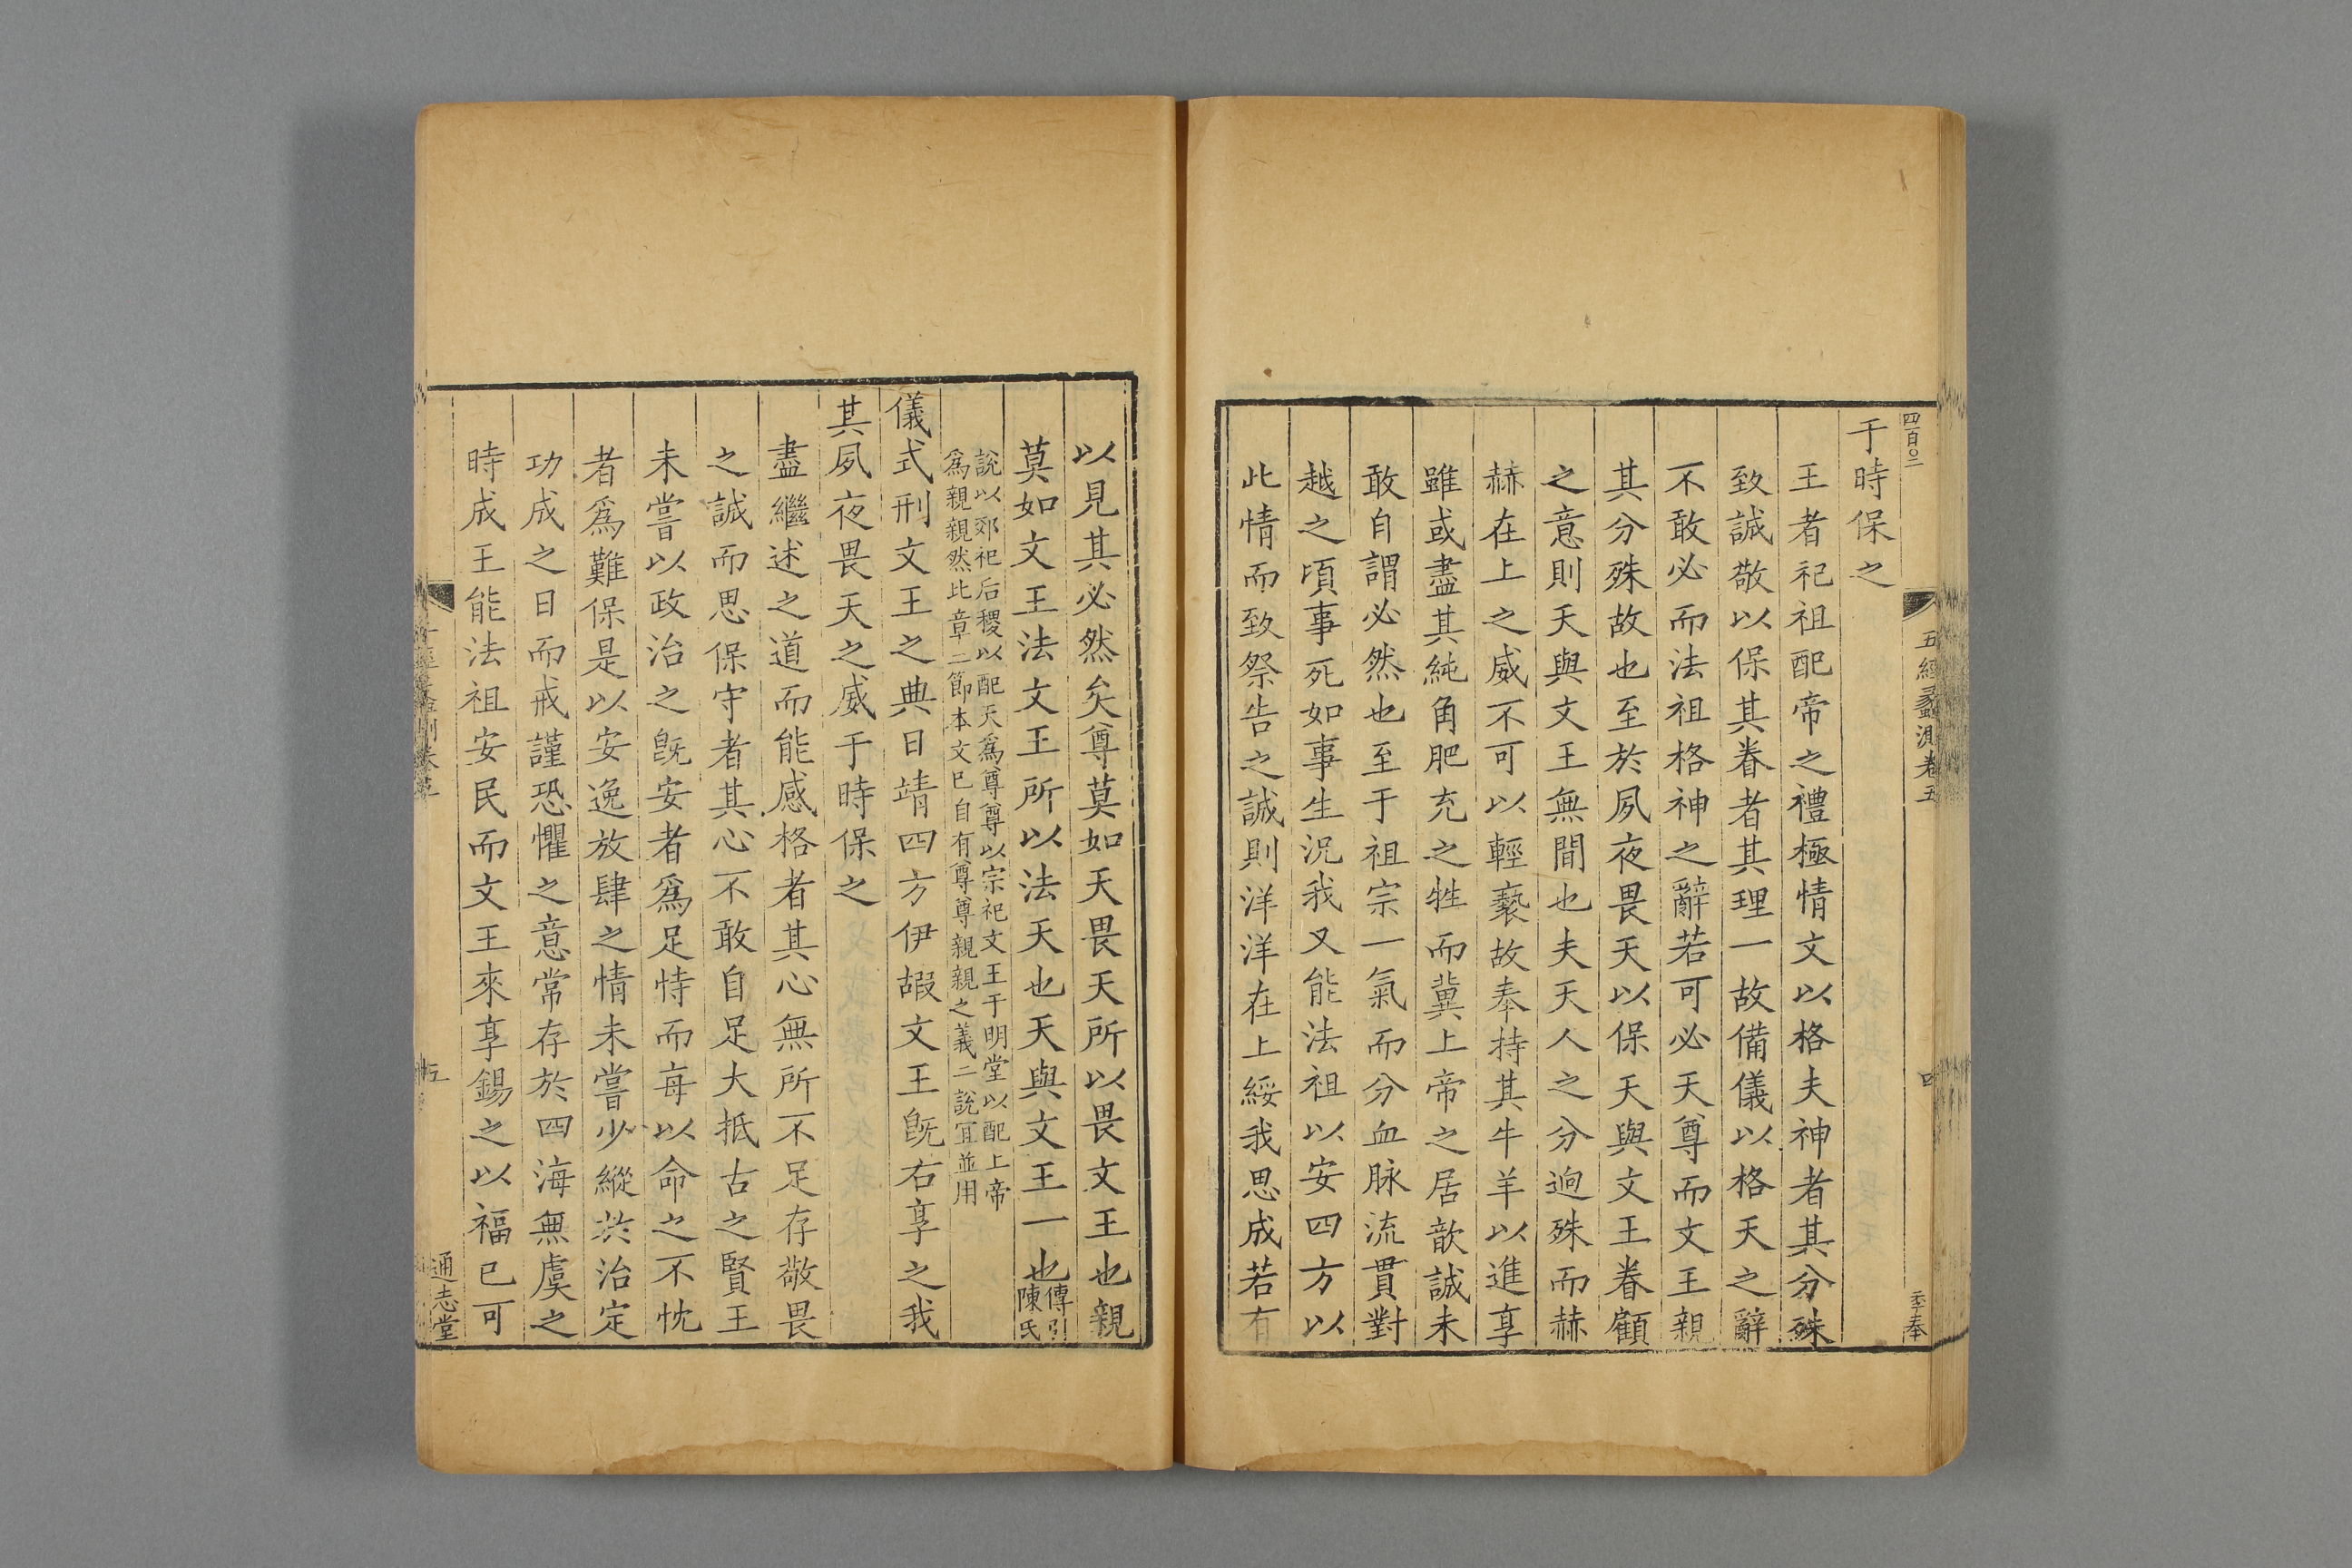 四百〇二
五經蠡測卷五
四
季奉
于時保之
王者祀祖配帝之禮極情文以格夫神者其分殊
致誠敬以保其眷者其理一故備儀以格天之辭
不敢必而法祖格神之辭若可必天尊而文王親
其分殊故也至於夙夜畏天以保天與文王眷顧
之意則天與文王無間也夫天人之分逈殊而赫
赫在上之威不可以輕褻故奉持其牛羊以進享
雖或盡其純角肥充之牲而冀上帝之居歆誠未
敢自謂必然也至于祖宗一氣而分血脉流貫對
越之頃事死如事生況我又能法祖以安四方以
此情而致祭告之誠則洋洋在上綏我思成若有
以見其必然矣尊莫如天畏天所以畏文王也親
莫如文王法文王所以法天也天與文王一也傳引陳氏
說以郊祀后稷以配天爲尊尊以宗祀文王于明堂以配上帝
爲親親然此章二節本文已自有尊尊親親之義二說宜並用
儀式刑文王之典日靖四方伊嘏文王旣右享之我
其夙夜畏天之威于時保之
盡繼述之道而能感格者其心無所不足存敬畏
之誠而思保守者其心不敢自足大抵古之賢王
未嘗以政治之旣安者爲足恃而每以命之不忱
者爲難保是以安逸放肆之情未嘗少縱於治定
功成之日而戒謹恐懼之意常存於四海無虞之
時成王能法祖安民而文王來享錫之以福已可
五
通志堂